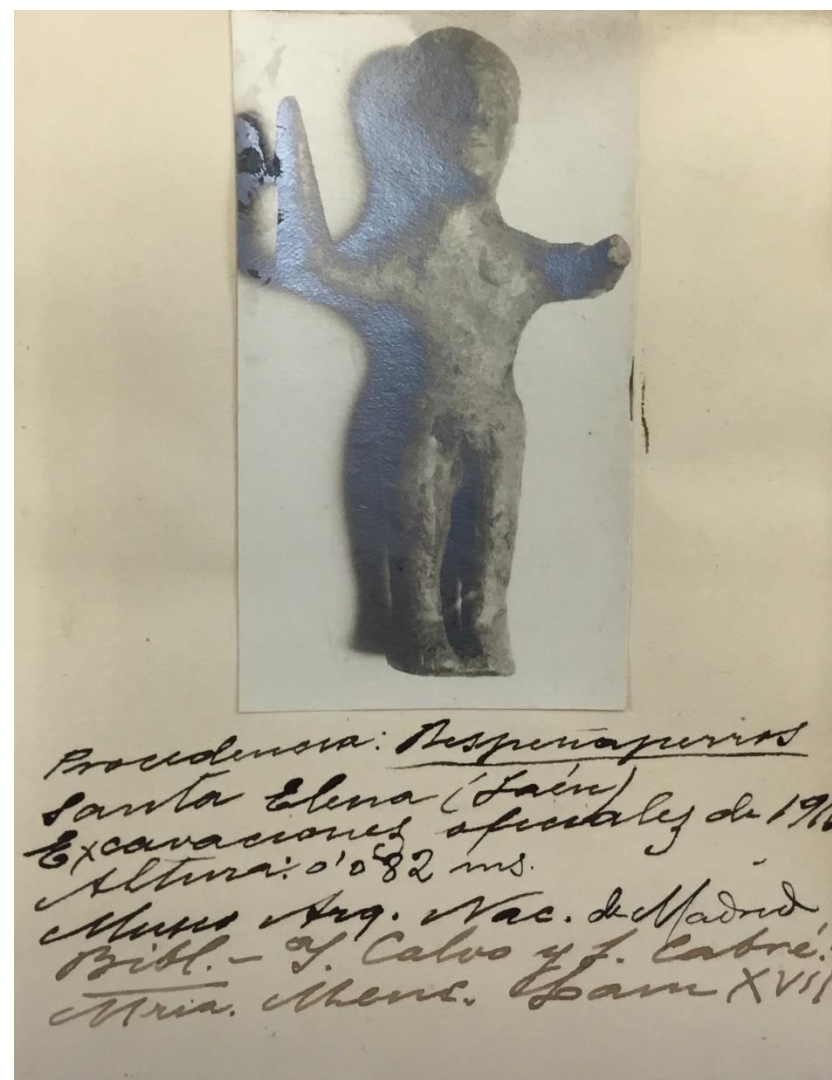 Procedencia: Despeñaperros
Santa Elena (Jaén)
Excavaciones oficiales de 191
Altura: 0'082 ms.
Museo Arq. Nac. de Madrid
Bibl.- I. Calvo y J. Cabré.
Mria. Menc. Lam XVII